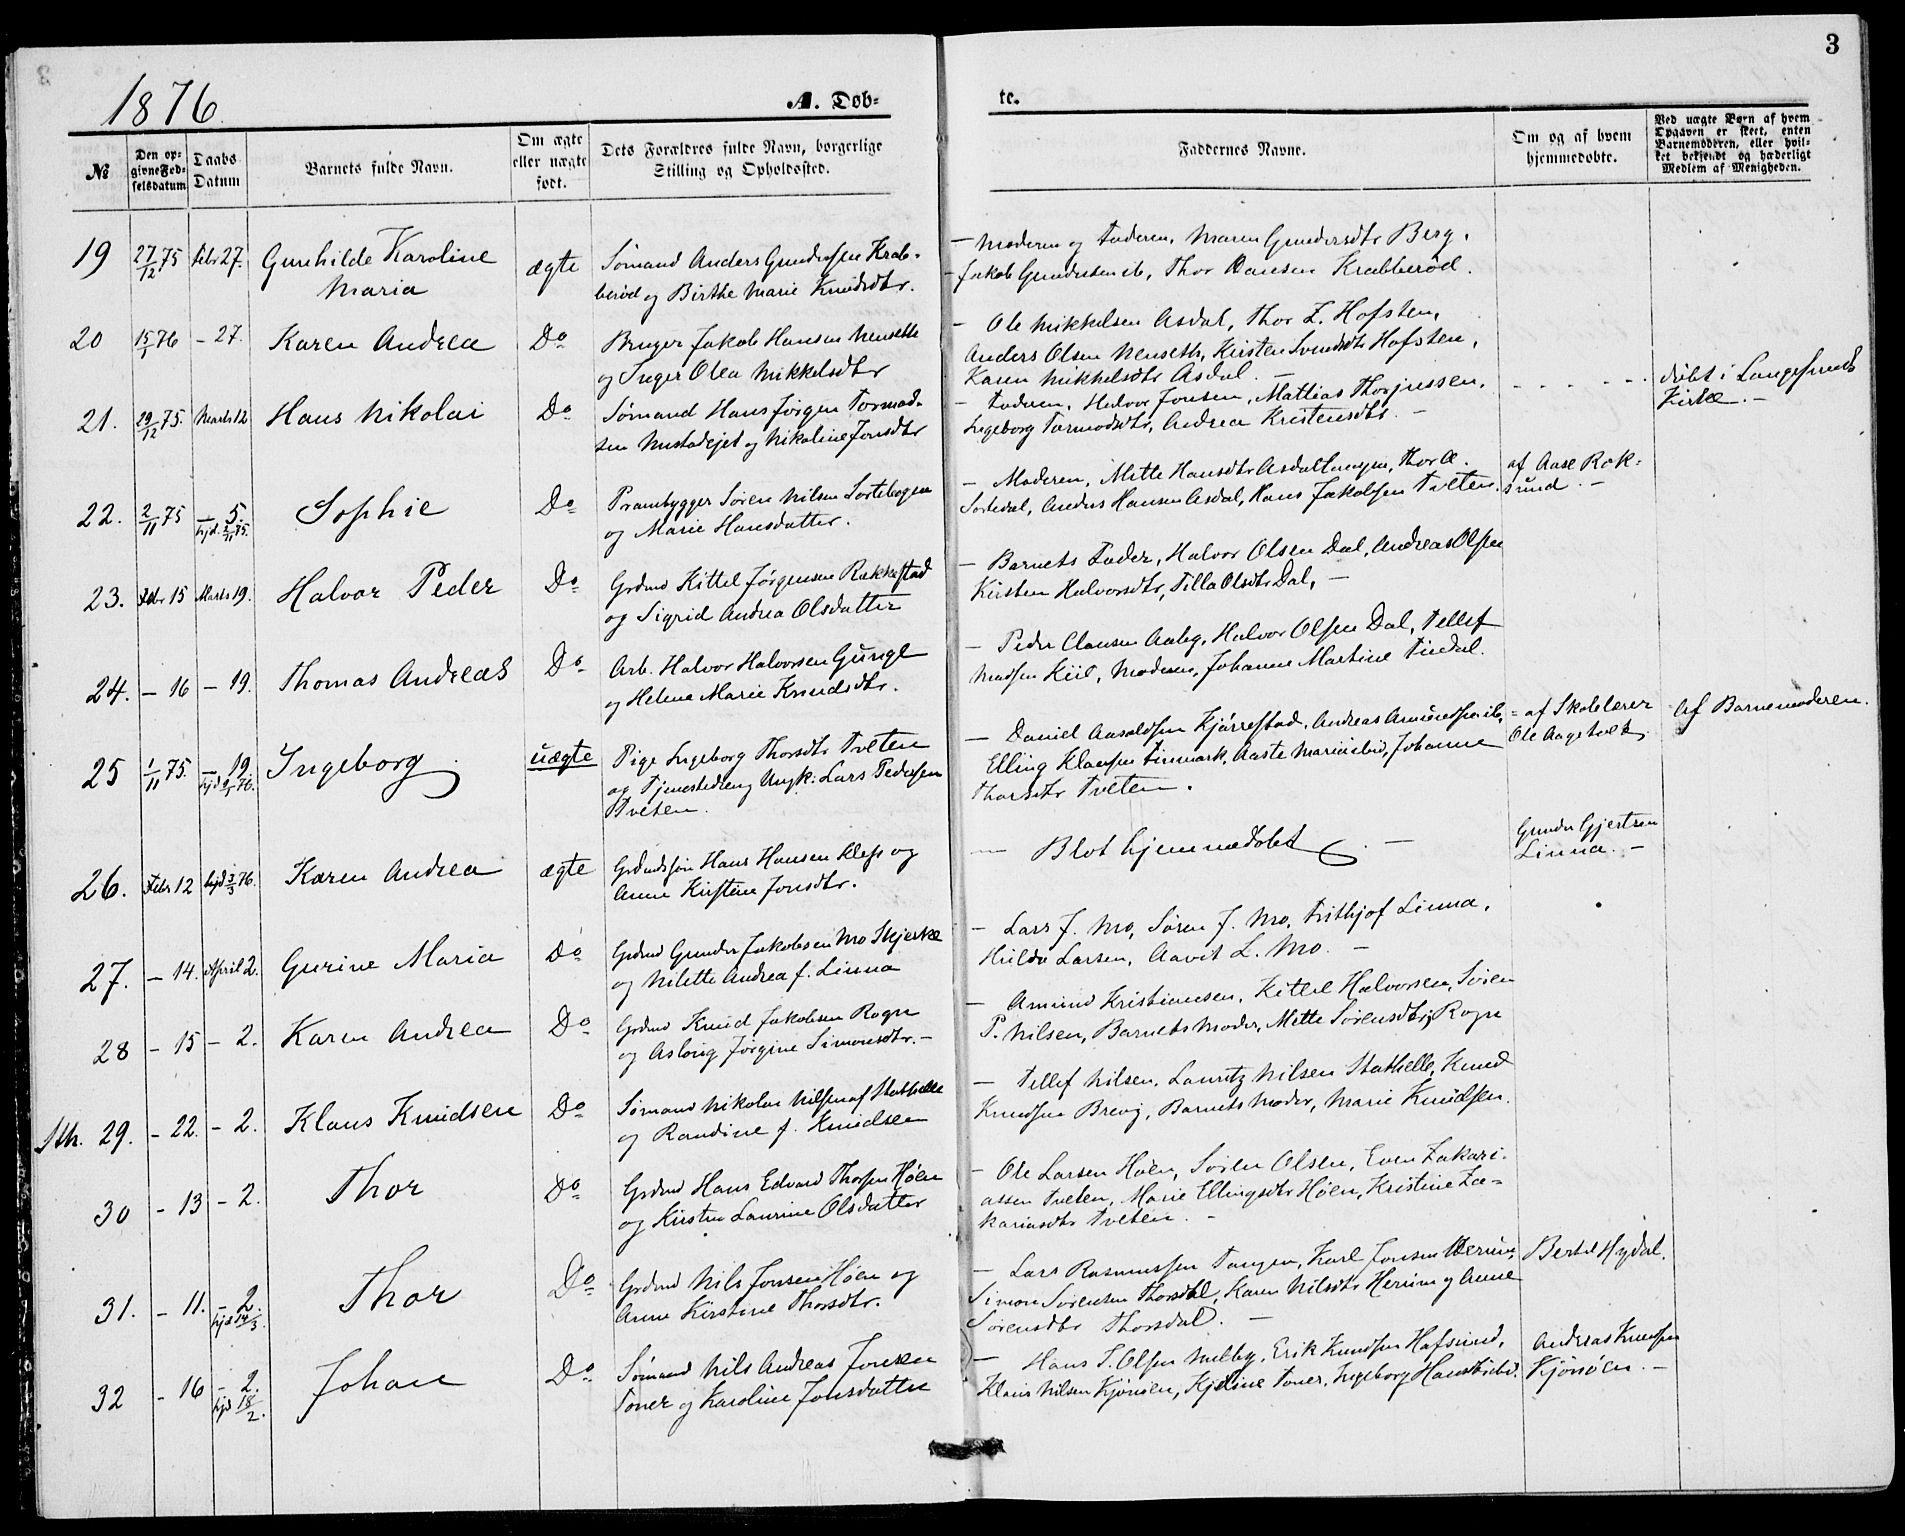 3
1876.
A. Døb-
te.
№
Den op-
givne Fød-
selsdatum
Daabs
Datum
Barnets fulde Navn.
Om ægte
eller uægte
født.
Dets Forældres fulde Navn, borgerlige
Stilling og Opholdssted.
Faddernes Navne.
Om og af hvem
hjemmedøbte.
Ved uægte Børn af hvem
Opgaven er skeet, enten
Barnemoderen, eller hvil-
ket bekjendt og hæderligt
Medlem af Menigheden.
19 27/12 75 Febr 27. Gunhilde Karoline
Maria
ægte
Sømand Anders Gundersen Krab-
berød og Birthe Marie Knudsdtr.
- Moderen og Faderen, Maren Gundersdtr Berg,
Jakob Gundersen ib, Thor Hansen Krabberød.
20 15/1 76 - 27. Karen Andrea Do
Bruger Jakob Hansen Nenseth
og Inger Olea Mikkelsdtr
- Ole Mikkelsen Asdal, Thor L. Hafsten,
Anders Olsen Nenseth, Kirsten Svendsdtr Hafsten,
Karen Mikkelsdtr Asdal. -
21. 29/12 75. Marts 12 Hans Nikolai Do
Sømand Hans Jørgen Tormod-
sen og Nikoline Jonsdtr
- Faderen, Halvor Jonsen, Mattias Thorjussen,
Ingeborg Tormodsdtr, Andrea Kristensdtr. -
døbt i Langesunds
Kirke. -
22. 2/11 75 - 5.
hjd. 2/11 75.
Sophie Do
Prambygger Søren Nilsen Sortebogen
og Marie Hansdatter.
- Moderen, Mette Hansdtr Asdaltangen, Thor A.
Sortedal, Anders Hansen Asdal, Hans Jakobsen Tveten.
af Aase Rok-
sund. -
23. Febr 15 Marts 19. Halvor Peder Do
Grdmd Kittel Jørgensen Rakkestad
og Sigrid Andrea Olsdatter
- Barnets Fader, Halvor Olsen Dal, Andreas Olsen
Kirsten Halvorsdtr, Tilla Olsdtr Dal, -
24. - 16 - 19. Thomas Andreas Do
Arb. Halvor Halvorsen Gunge
og Helene Marie Knudsdtr.
- Peder Clausen Aaby, Halvor Olsen Dal, Tellef
Madsen Kiil, Moderen, Johanne Martine Findal.
25 1/11 75. - 19
hjd 9/1 76.
Ingeborg uægte
Pige Ingeborg Thorsdtr Tveten
og Tjenestedreng Ungk: Lars Pedersen
Tveten.
- Daniel Aasoldsen Kjørrestad, Andreas Amundsen ib,
Elling Klausen Finmark, Aaste Maria ibid, Johanne
Thorsdtr Tveten.
= af Skolelærer
Ole Aagetvedt.
Af Barnemoderen.
26. Febr 12 hjd 3/3 76. Karen Andrea ægte
Grdmdssøn Hans Hansen Kleps og
Anne Kirstine Jonsdtr.
- Blot hjemmedøbt. -
Gunder Gjertsen
Linna. -
27. - 14. April 2. Gurine Maria Do
Grdmd Gunder Jakobsen Mo Skjerke
og Nilette Andrea f. Linna
- Lars J. Mo, Søren J. Mo, Frithjof Linna,
Hulda Larsen, Aavit L. Mo. -
28 - 15 - 2. Karen Andrea Do
Grdmd Knud Jakobsen Rogn
og Aslaug Jørgine Simonsdtr. -
- Amund Kristiansen, Kittel Halvorsen, Søren
P. Nilsen, Barnets Moder, Mette Sørensdtr, Rogn
Sth. 29. - 22. - 2. Klaus Knudsen Do
Sømand Nikolai Nilsen af Stathelle
og Randine f. Knudsen
- Tellef Nilsen, Lauritz Nilsen Stathelle, Knud
Knudsen Brevig, Barnets Moder, Marie Knudsen.
30 - 13 - 2. Thor Do
Grdmd Hans Edvard Thorsen Høen
og Kirsten Laurine Olsdatter
- Ole Larsen Høen, Søren Olsen, Even Zakari-
assen Tveten, Marie Ellingsdtr Høen, Kristine Za-
kariasdtr Tveten. -
31. - 11. - 2.
hjd 14/3.
Thor Do
Grdmd Nils Jonsen Høen og
Anne Kirstine Thorsdtr.
- Lars Rasmussen Tangen, Karl Jonsen Herum,
Simon Sørensen Thorsdal, Karen Nilsdtr Herum og Anne
Sørensdtr Thorsdal. -
Bertel Hydal.
32 - 16 - 2.
hjd 18/2.
Johan Do
Sømand Nils Andreas Jonsen
Toner og Karoline Jonsdatter
- Hans S. Olsen Melby, Erik Knudsen Hafsund,
Klaus Nilsen Kjønøen, Kjeline Toner, Ingeborg Hansdtr ibid.
Andreas Knudsen
Kjønøen. -